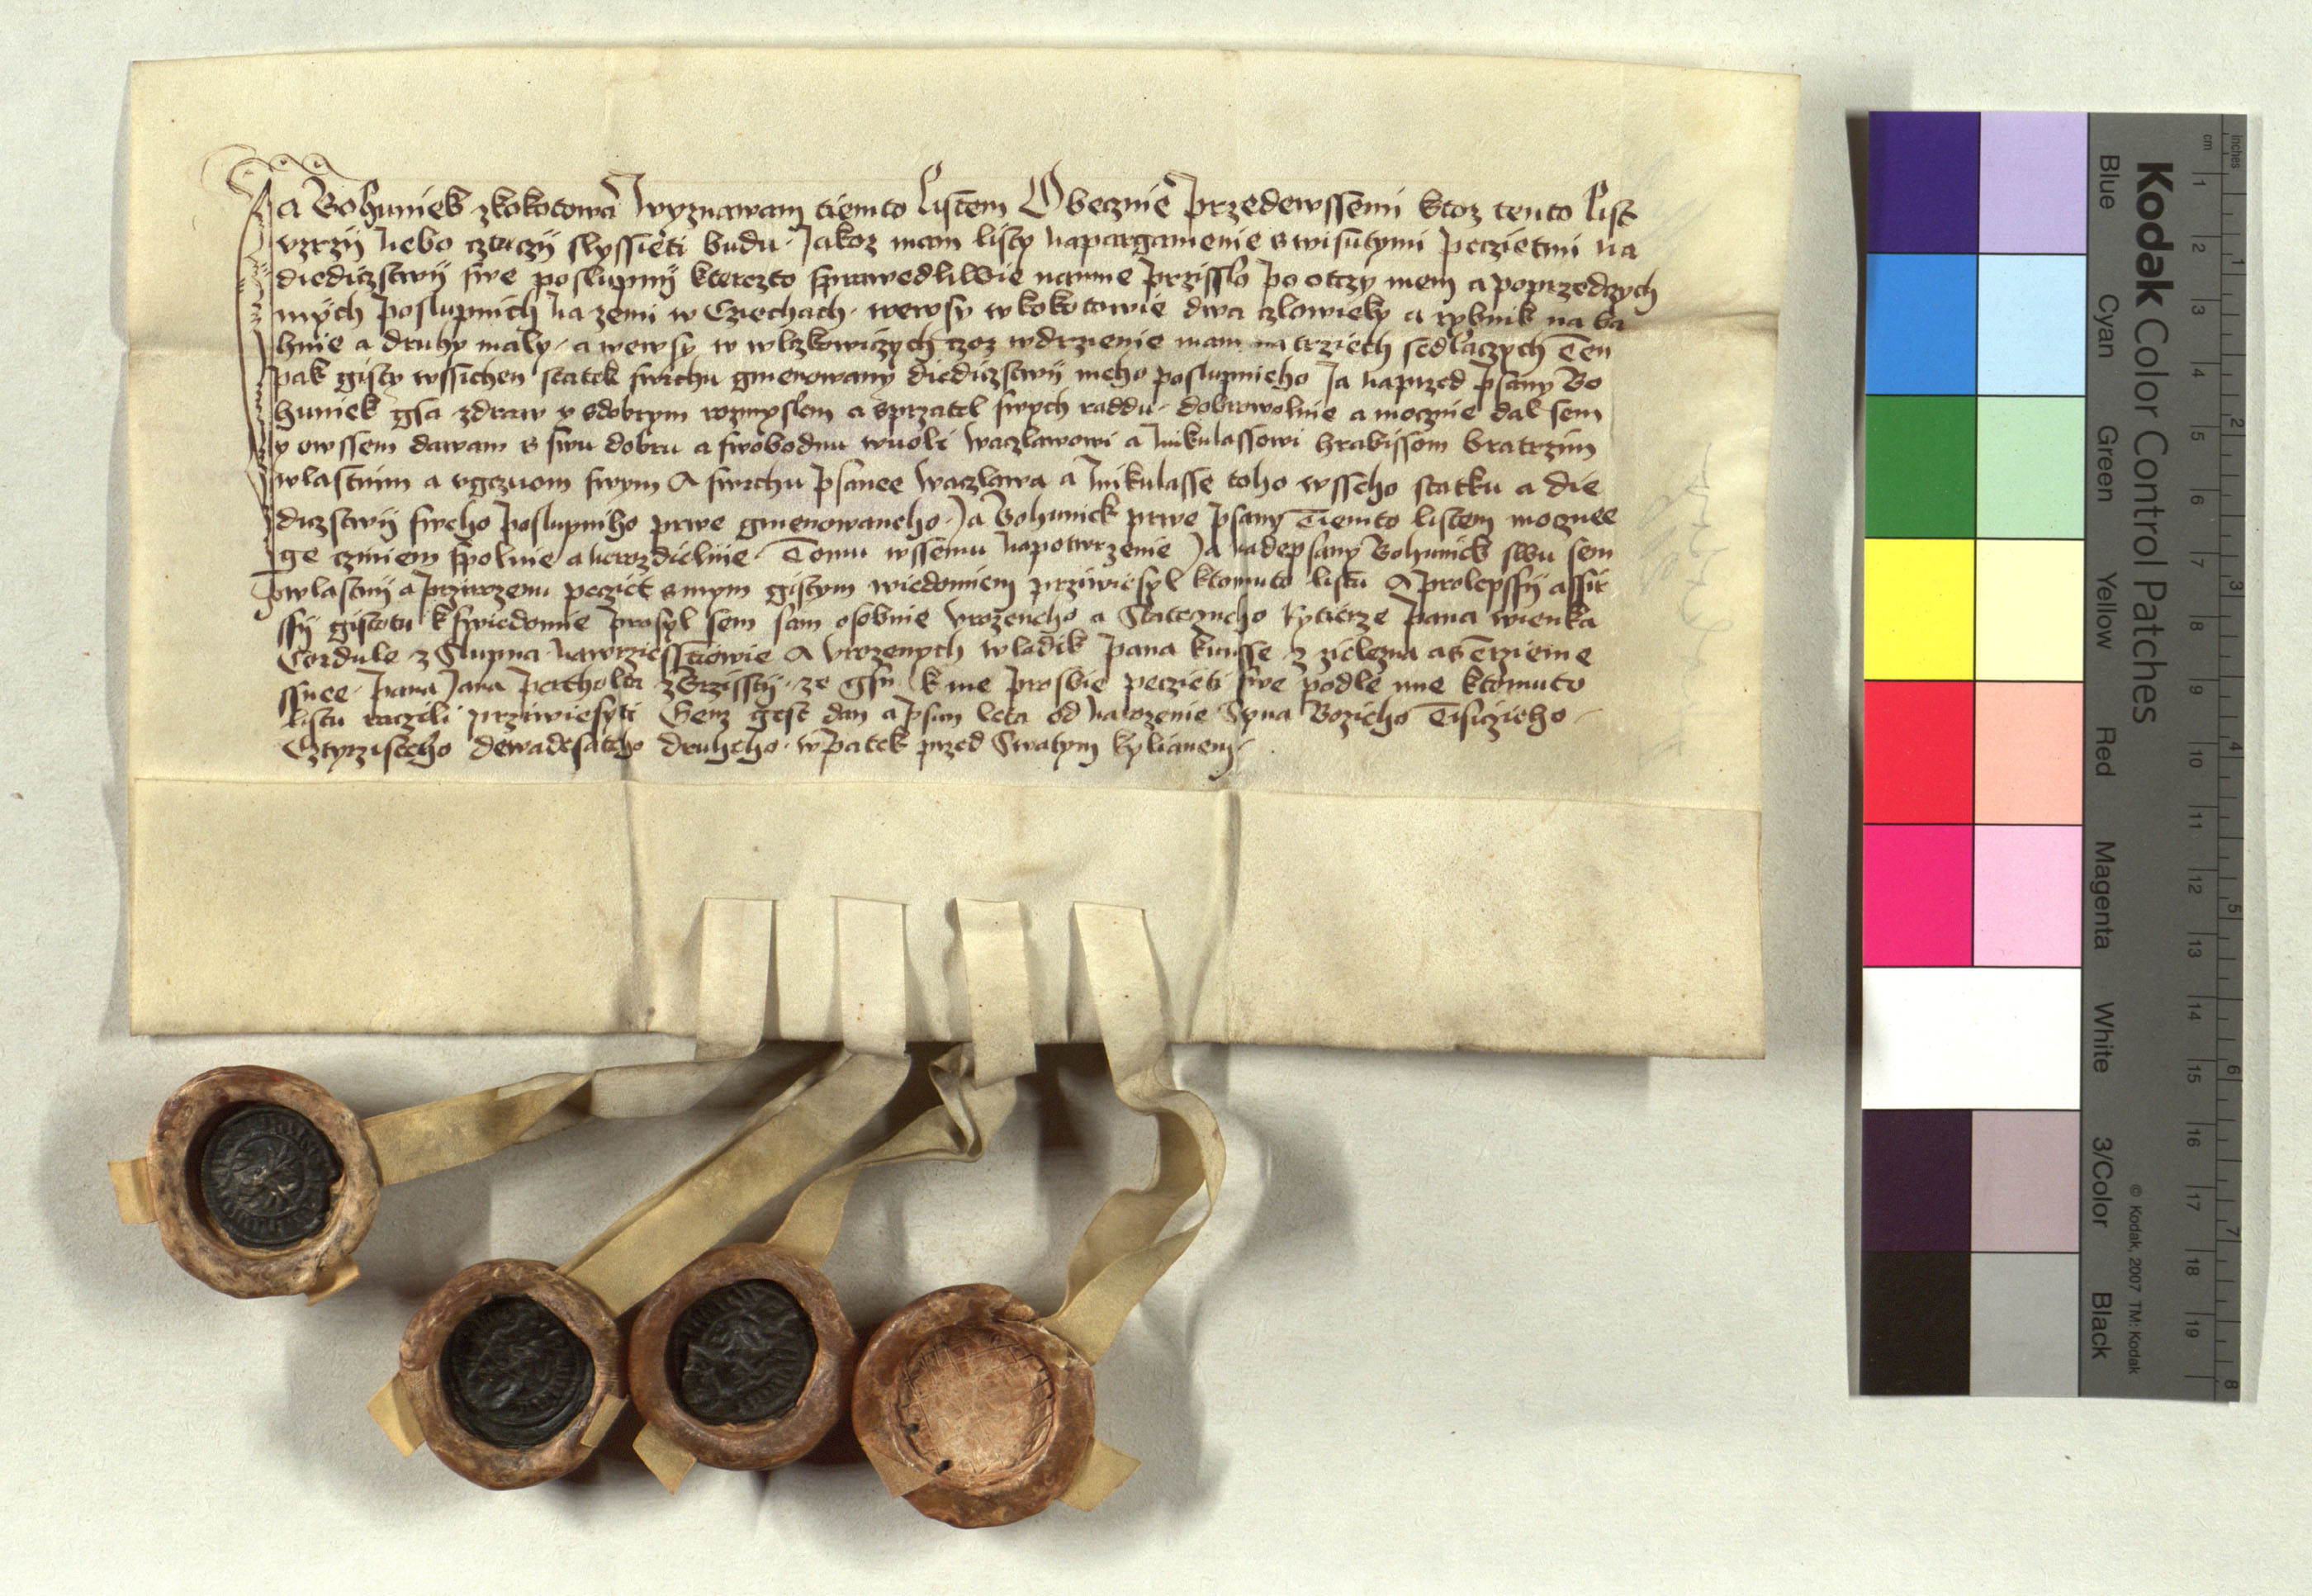 Ja Bohuniek zkokotowa wyznawam tiemto listem Obecznie przedewssemi ktoz tento list
vzrzij nebo cztuczij slyssieti budu. Jakoz mam listy napargamenie s wisutymi peczietmi na
diediczstwij swe poslupnij kterezto sprawedliwie namne przisslo po otczy mem a poprzedczych
mych poslupnich na zemi w Czechach. wewsy wkokotowie dwa czlowieky a rybnik na ba
hnie a druhy maly. a wewsy w wlczkowiczych czoz wdrzienie mam na trziech sedlaczych Ten
pak gisty wssichen statek swrchu gmenowany diediczstwij meho poslupnieho Ja naprzed psany Bo
huniek gsa zdraw y sdobrym rozmyslem a sprzatel swych raddu. dobrowolnie a mocznie dal sem
y owssem dawam s swu dobru a swobodnu wuoli Waczlawowi a mikulassowi hrabissom bratrzim
wlastnim a vgczuom swym A swrchu psanee Waczlawa a mikulasse toho wsseho statku a die
diczstwij sweho poslupniho prwe gmenowaneho. Ja Bohuniek prwe psany Tiemto listem mocznee
ge czniem spolnie a nerozdielnie. Tomu wssemu napotwrzenie Ja nadepsany Bohuniek swu sem
wlastnij a przirozenu pecziet s mym gistym wiedomiem przwiesyl ktomuto listu A prolepssij assir
ssij gistotu k swiedomie prosyl sem sam osobnie vrozeneho a Stateczneho Rytierze pana wienka
Cordule z Slupna nawrziesstiowie A vrozenych wladik pana kunsse z zielezna a s Trzieme
ssnee. pana Jana pertholta zBrzisstij. ze gsu k me prosbie peczieti swe podle mne ktomuto
listu raczili przwiesyti Genz gest dan a psan leta od narozenie Syna Bozieho Tisiczieho
Cztyrzisteho dewadesateho druheho. w patek przed Swatym kylianem.
Kodak Color Control Patches
Blue Cyan Green Yellow Red Magenta White 3/Color Black
© Kodak, 2007 TM: Kodak
inches 1 2 3 4 5 6 7 8
cm 1 2 3 4 5 6 7 8 9 10 11 12 13 14 15 16 17 18 19